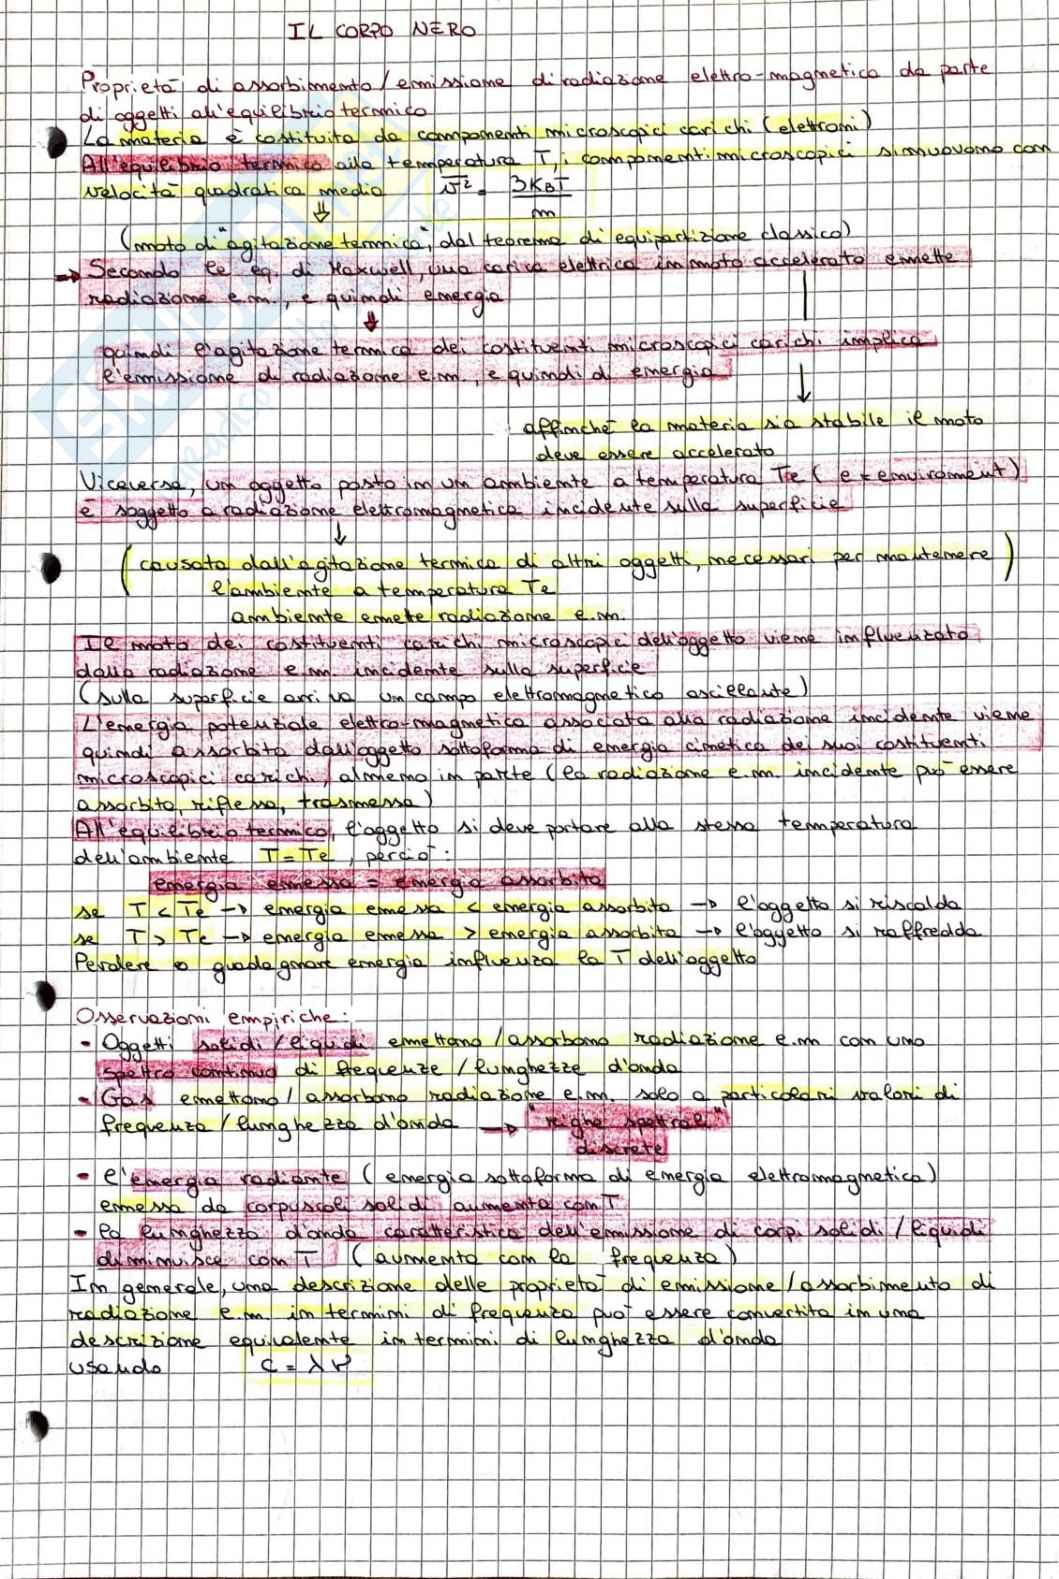 IL CORPO NERO
Proprietà di assorbimento / emissione di radiazione elettro-magnetica da parte
di oggetti all'equilibrio termico
La materia è costituita da componenti microscopici carichi (elettroni)
All'equilibrio termico alla temperatura T, i componenti microscopici si muovono con
velocità quadratica media v² = 3KBT / m
(moto di "agitazione termica", dal teorema di equipartizione classico)
→ Secondo le eq. di Maxwell, una carica elettrica in moto accelerato emette
radiazione e.m., e quindi energia
quindi l'agitazione termica dei costituenti microscopici carichi implica
l'emissione di radiazione e.m., e quindi di energia
affinché la materia sia stabile il moto
deve essere accelerato
Viceversa, un oggetto posto in un ambiente a temperatura Te (e = enviroment)
è soggetto a radiazione elettromagnetica incidente sulla superficie
(causata dall'agitazione termica di altri oggetti, necessari per mantenere)
l'ambiente a temperatura Te
ambiente emette radiazione e.m.
Il moto dei costituenti carichi microscopici dell'oggetto viene influenzato
dalla radiazione e.m. incidente sulla superficie
(sulla superficie arriva un campo elettromagnetico oscillante)
L'energia potenziale elettro-magnetica associata alla radiazione incidente viene
quindi assorbita dall'oggetto sottoforma di energia cinetica dei suoi costituenti
microscopici carichi, almeno in parte (la radiazione e.m. incidente può essere
assorbita, riflessa, trasmessa)
All'equilibrio termico, l'oggetto si deve portare alla stessa temperatura
dell'ambiente T = Te, perciò:
energia emessa = energia assorbita
se T < Te → energia emessa < energia assorbita → l'oggetto si riscalda
se T > Te → energia emessa > energia assorbita → l'oggetto si raffredda
Perdere o guadagnare energia influenza la T dell'oggetto
Osservazioni empiriche:
- Oggetti solidi / liquidi emettono / assorbono radiazione e.m con uno
spettro continuo di frequenze / lunghezze d'onda
- Gas emettono / assorbono radiazione e.m. solo a particolari valori di
frequenza / lunghezza d'onda → "righe spettrali"
discrete
- l'energia radiante (energia sottoforma di energia elettromagnetica)
emessa da corpuscoli solidi aumenta con T
- la lunghezza d'onda caratteristica dell'emissione di corpi solidi / liquidi
diminuisce con T (aumenta con la frequenza)
In generale, una descrizione delle proprietà di emissione / assorbimento di
radiazione e.m. in termini di frequenza può essere convertita in una
descrizione equivalente in termini di lunghezza d'onda
usando c = λν